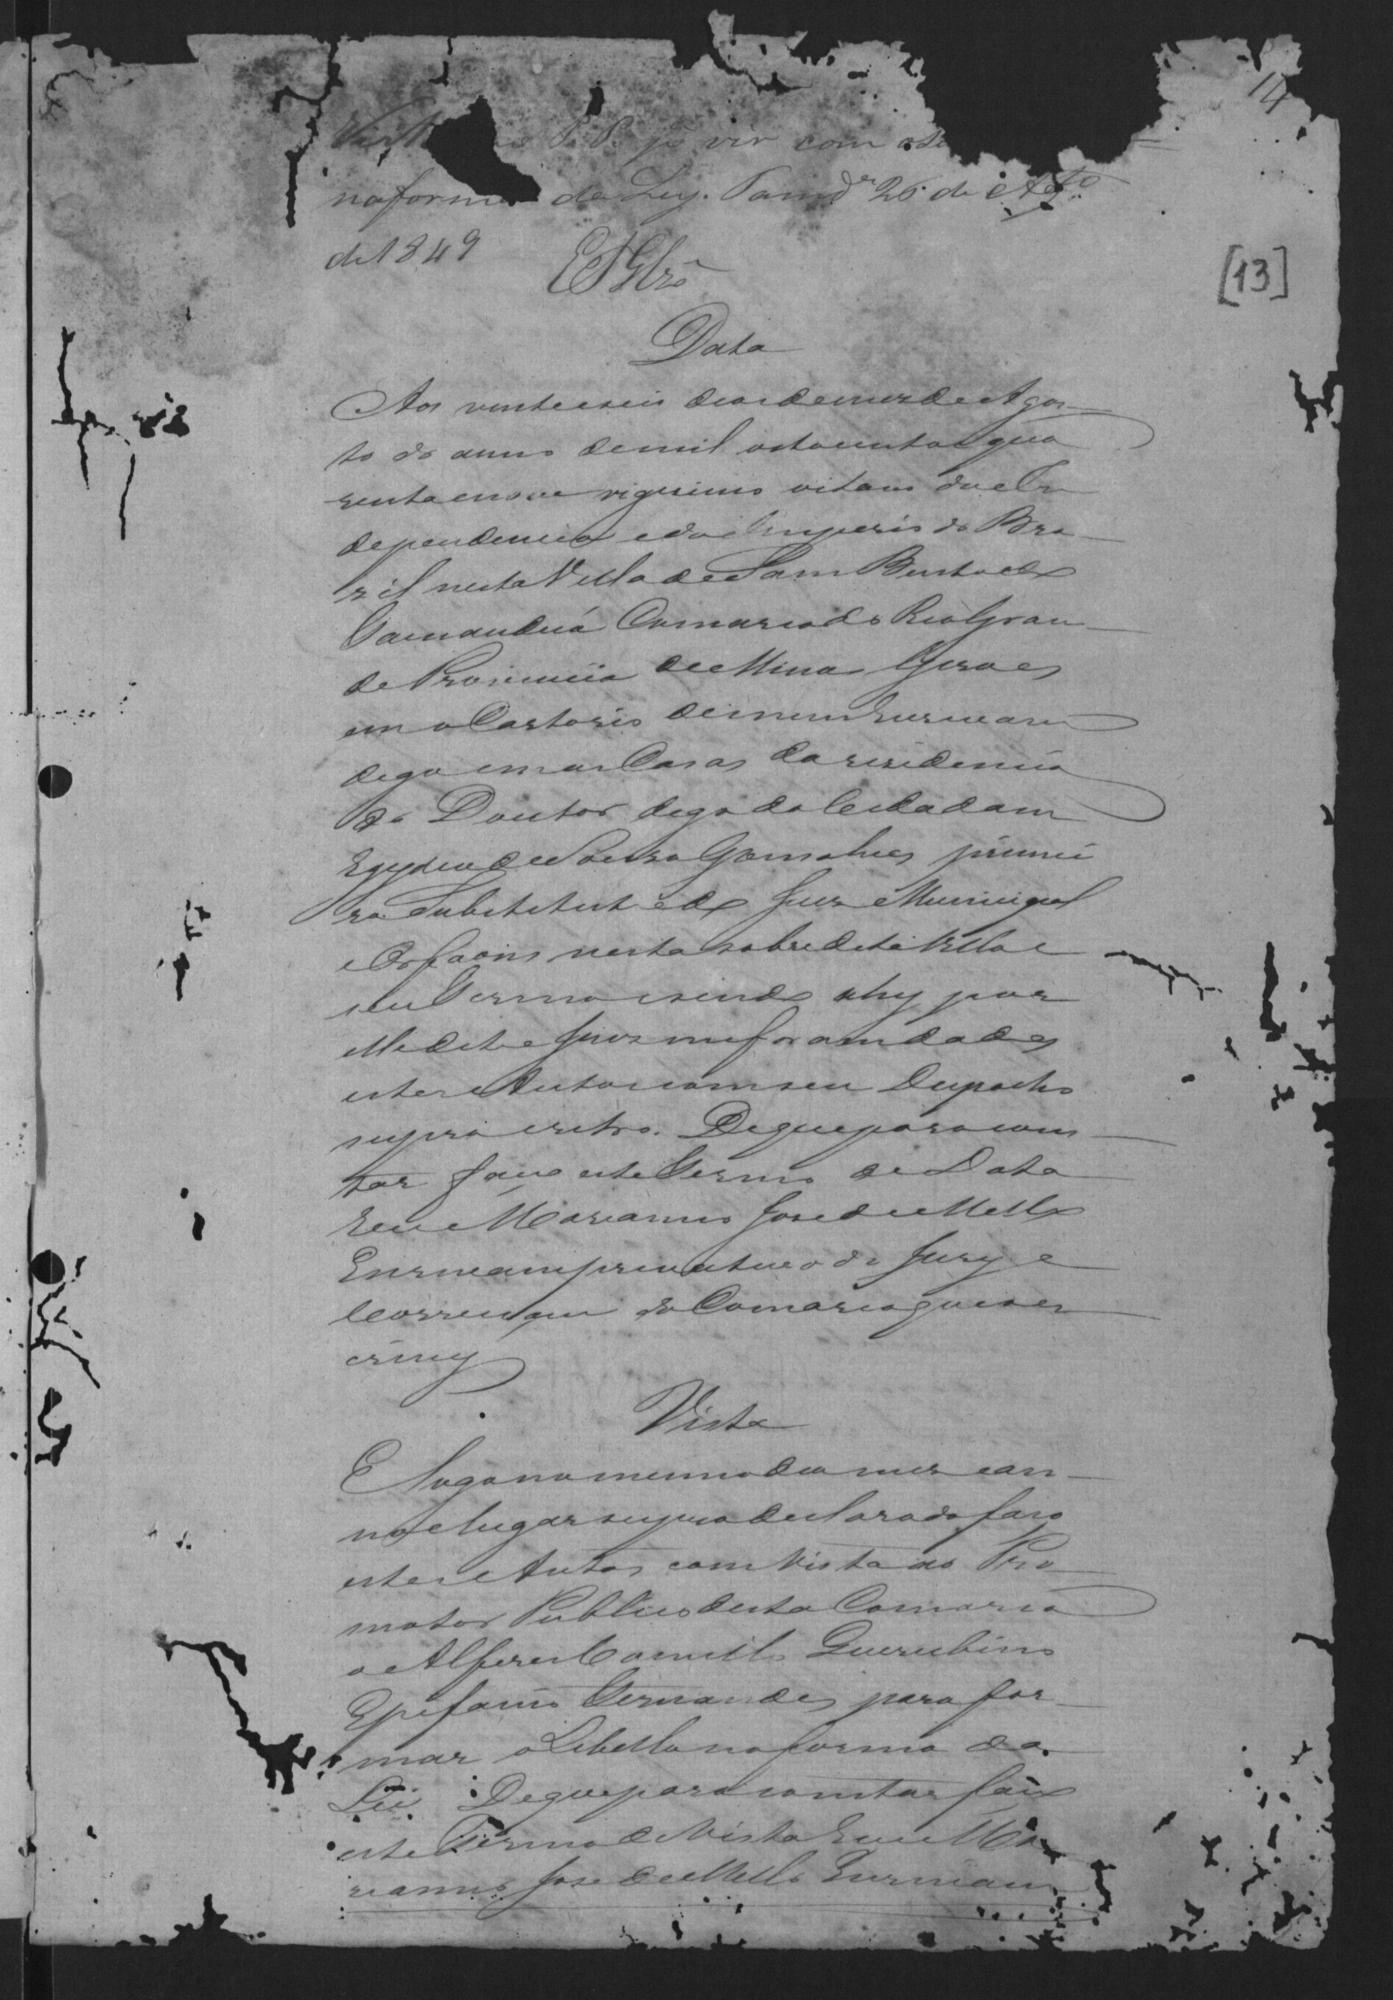 14
Vist P. P. pª vir com o
na forma da Ley. Tamdª 26 de Agtº
de 1849
[13]
Data
Aos vinte e seis dias do mez de Agos
to do anno de mil oitocentos qua
renta e nove vigesimo oitavo da In
dependencia e do Imperio do Bra
zil nesta Villa de Sam Bento do
Tamanduá Comarca do Rio Gran
de Provincia de Minas Geraes
em o Cartorio de mim Escrivam
digo em as Casas da residencia
do Doutor digo do Cidadam
Egydio de Souza Gonsalves primei
ro Substituto do Juiz Municipal
e Orfaons nesta sobredita Villa e
seu Termo e sendo ahy por
elle dito Juiz me foram dados
estes Autos com seu Despacho
supra e retro. De que para cons
tar faço este Termo de Data
Eu Marianno Jose de Mello
Escrivam privativo do Jury e
Correiçam da Comarca que o es
crevy
Vista
E logo no mesmo dia mez e an
no e lugar supra declarado faço
estes Autos com Vista ao Pro
motor Publico desta Comarca
o Alferes Camillo Querubino
Epifanio Fernandes para for
mar o Libello na forma da
Lei De que para constar faço
este Termo de Vista Eu Ma
rianno Jose de Mello Escrivam